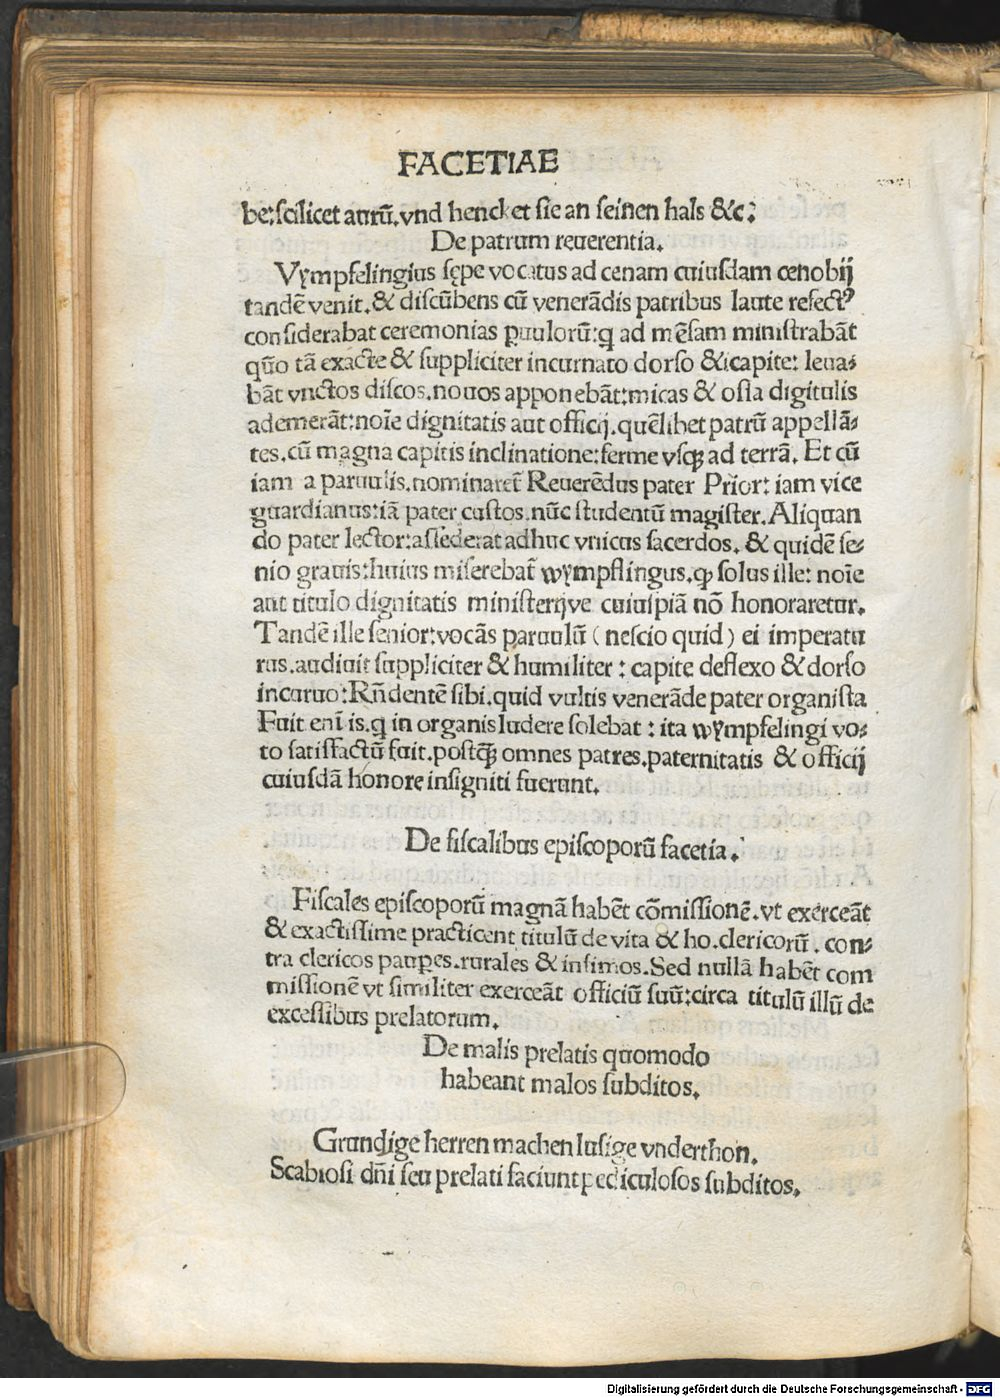 FACETIAE
be:scilicet aurū.vnd henck et sie an seinen hals &c.
De patrum reuerentia.
Vympfelingius sępe vocatus ad cenam cuiusdam cenobij
tandē venit.& discūbens cū venerādis patribus laute refectꝰ
considerabat ceremonias ꝑuulorū:q̨ ad mēsam ministrabāt
quō tā exacte & suppliciter incuruato dorso & capite: leua⸗
bāt vnctos discos.nouos apponebāt:micas & ossa digitulis
ademerāt:noīe dignitatis aut officij.quēlibet patrū appellā⸗
tes.cū magna capitis inclinatione:ferme vsq̨ ad terrā. Et cū
iam a paruulis.nominaret̄ Reuerēdus pater Prior: iam vice
guardianus:iā pater custos.nūc studentū magister. Aliquan
do pater lector:assederat adhuc vnicus sacerdos. & quidē se⸗
nio grauis:huius miserebat̄ wympflingus.q̨ solus ille: noīe
aut titulo dignitatis ministerijve cuiuspiā nō honoraretur.
Tandē ille senior:vocās paruulū (nescio quid) ei imperatu
rus.audiuit suppliciter & humiliter: capite deflexo & dorso
incuruo:Rn̄dentē sibi.quid vultis venerāde pater organista
Fuit enī is.q̨ in organis ludere solebat: ita wympfelingi vo⸗
to satisfactū fuit.postq̨̄ omnes patres.paternitatis & officij
cuiusdā honore insigniti fuerunt.
De fiscalibus episcoporū facetia.
Fiscales episcoporū magnā habēt cōmissionē.vt exerceāt
& exactissime practicent titulū de vita & ho.clericorū. con⸗
tra clericos pauꝑes.rurales & infimos.Sed nullā habēt com
missionē vt similiter exerceāt officiū suū:circa titulū illū de
excessibus prelatorum.
De malis prelatis quomodo
habeant malos subditos.
Grundige herren machen lusige vnderthon.
Scabiosi dn̄i seu prelati faciunt pediculosos subditos.
Digitalisierung gefördert durch die Deutsche Forschungsgemeinschaft - DFG